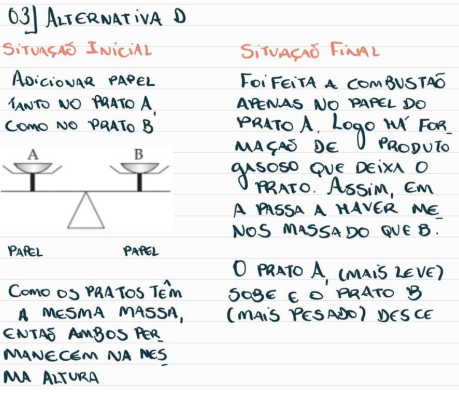 03] ALTERNATIVA D
SITUAÇÃO INICIAL
ADICIONAR PAPEL
TANTO NO PRATO A,
COMO NO PRATO B
A B
PAPEL PAPEL
COMO OS PRATOS TÊM
A MESMA MASSA,
ENTÃO AMBOS PER_
MANECEM NA MES
MA ALTURA
SITUAÇÃO FINAL
FOI FEITA A COMBUSTÃO
APENAS NO PAPEL DO
PRATO A. LOGO HÁ FOR_
MAÇÃO DE PRODUTO
GASOSO QUE DEIXA O
PRATO. ASSIM, EM
A PASSA A HAVER ME_
NOS MASSA DO QUE B.
O PRATO A, (MAIS LEVE)
SOBE E O PRATO B
(MAIS PESADO) DESCE